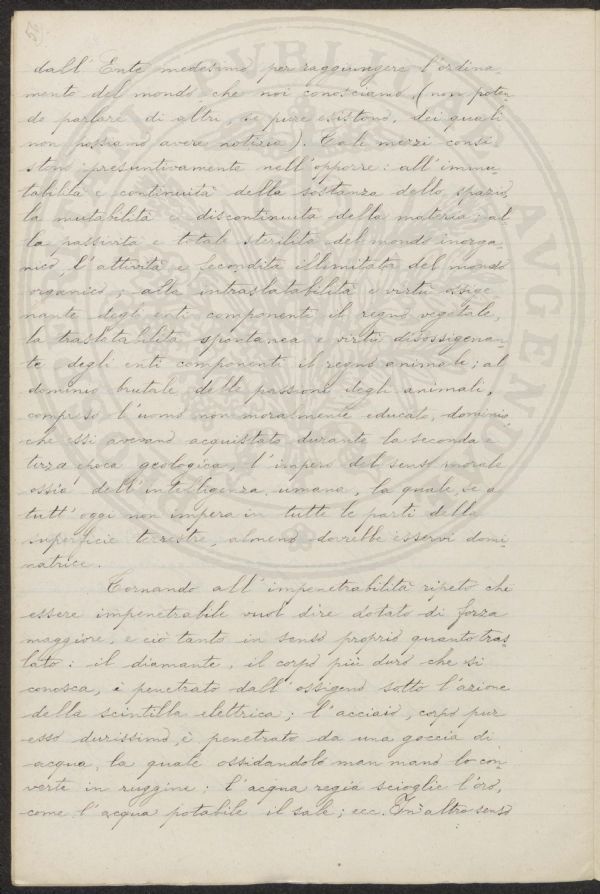 52
dall' Ente medesimo per raggiungere l'ordina-
mento del mondo che noi conosciamo, (non poten-
do parlare di altri, se pure esistono, dei quali
non possiamo avere notizia). Tali mezzi consi-
stono presuntivamente nell'opporre: all'immu-
tabilità e continuità della sostanza dello spazio,
la mutabilità e discontinuità della materia; al-
la passività e totale sterilità del mondo inorga-
nico, l'attività e fecondità illimitata del mondo
organico; alla intraslatabilità e virtù ossige-
nante degli enti componenti il regno vegetale,
la traslatabilità spontanea e virtù disossigenan-
te degli enti componenti il regno animale; al
dominio brutale delle passioni degli animali,
compreso l'uomo non moralmente educato, dominio
che essi avevano acquistato durante la seconda e
terza epoca geologica, l'impero del senso morale
ossia dell'intelligenza umana, la quale, se a
tutt'oggi non impera in tutte le parti della
superficie terrestre, almeno dovrebbe esservi domi-
natrice.
Tornando all'impenetrabilità ripeto che
essere impenetrabile vuol dire dotato di forza
maggiore, e ciò tanto in senso proprio quanto tras-
lato: il diamante, il corpo più duro che si
conosca, è penetrato dall'ossigeno sotto l'azione
della scintilla elettrica; l'acciaio, corpo pur
esso durissimo, è penetrato da una goccia di
acqua, la quale ossidandolo man mano lo con-
verte in ruggine; l'acqua regia scioglie l'oro,
come l'acqua potabile il sale; ecc. In altro senso